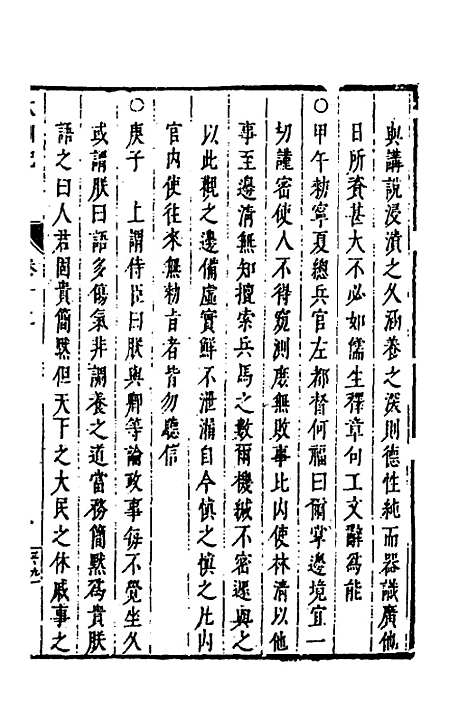 與講說浸漬之久涵養之深則德性純而器識廣他
日所資甚大不必如儒生釋章句工文辭為能
○甲午勑寧夏總兵官左都督何福曰爾掌邊境宜一
切謹密使人不得窺測庶無敗事比內使林清以他
事至邊清無知擅索兵馬之數爾機緘不密遽與之
以此觀之邊備虛實鮮不泄漏自今慎之慎之比內
官內使往來無勑旨者皆勿聽信
○庚子　上謂侍臣曰朕與卿等論政事每不覺坐久
或謂朕曰語多傷氣非調養之道當務簡默為貴朕
語之曰人君固貴簡默但天下之大民之休戚事之